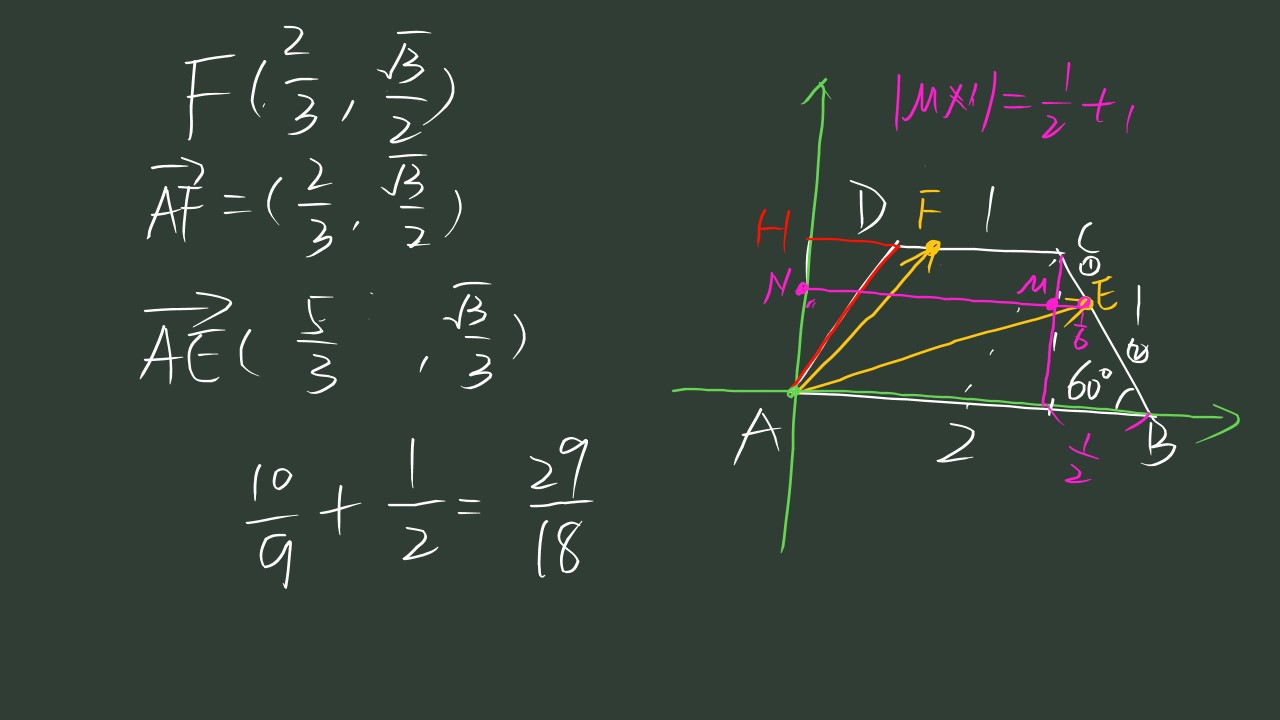 F(2/3, √3/2)
AF→ = (2/3, √3/2)
AE→(5/3, √3/3)
10/9 + 1/2 = 29/18
|MN| = 1/2 + 1
D F 1
H
C
①
N M E 1
1/6
②
60°
A 2 B
1/2